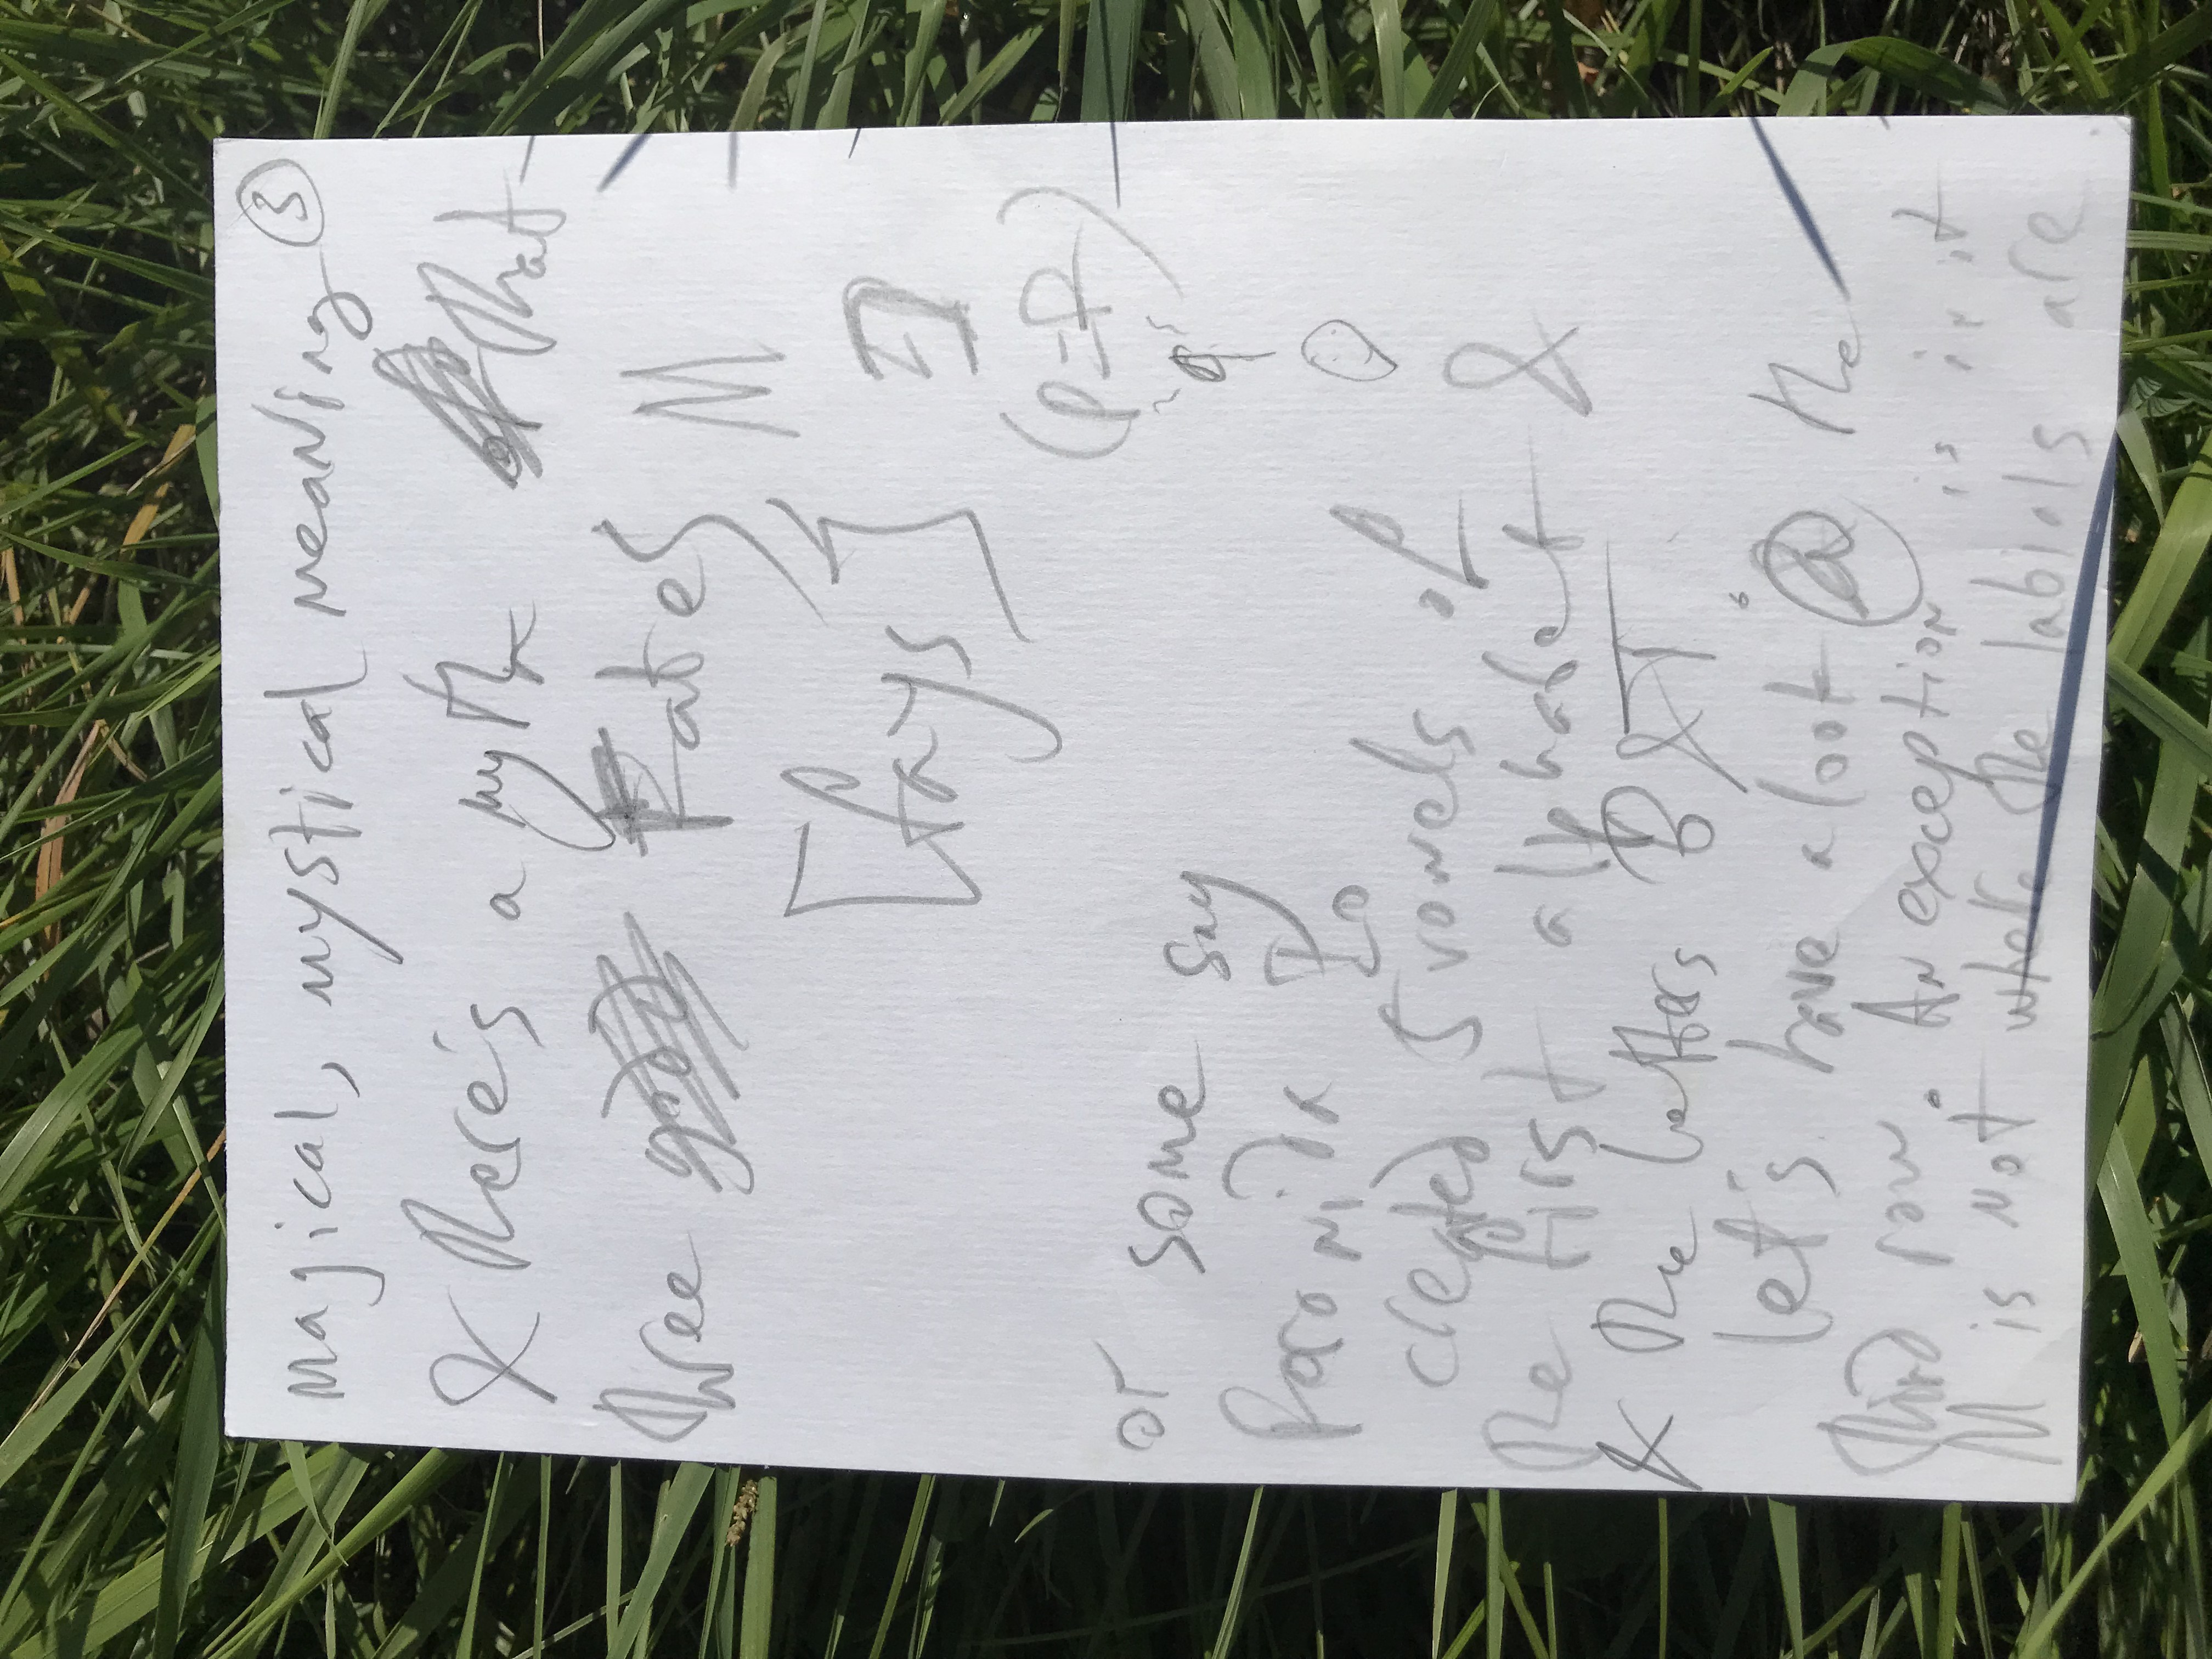 magical, mystical meaning ③
& there's a myth that
three Fates M
[fays]
(p=P)
q
O
or some say
Foronida Io
created 5 vowels of
the first alphabet &
& the letters B & T
let's have a look @ the
third row. An exception is in it
M is not where the labials are